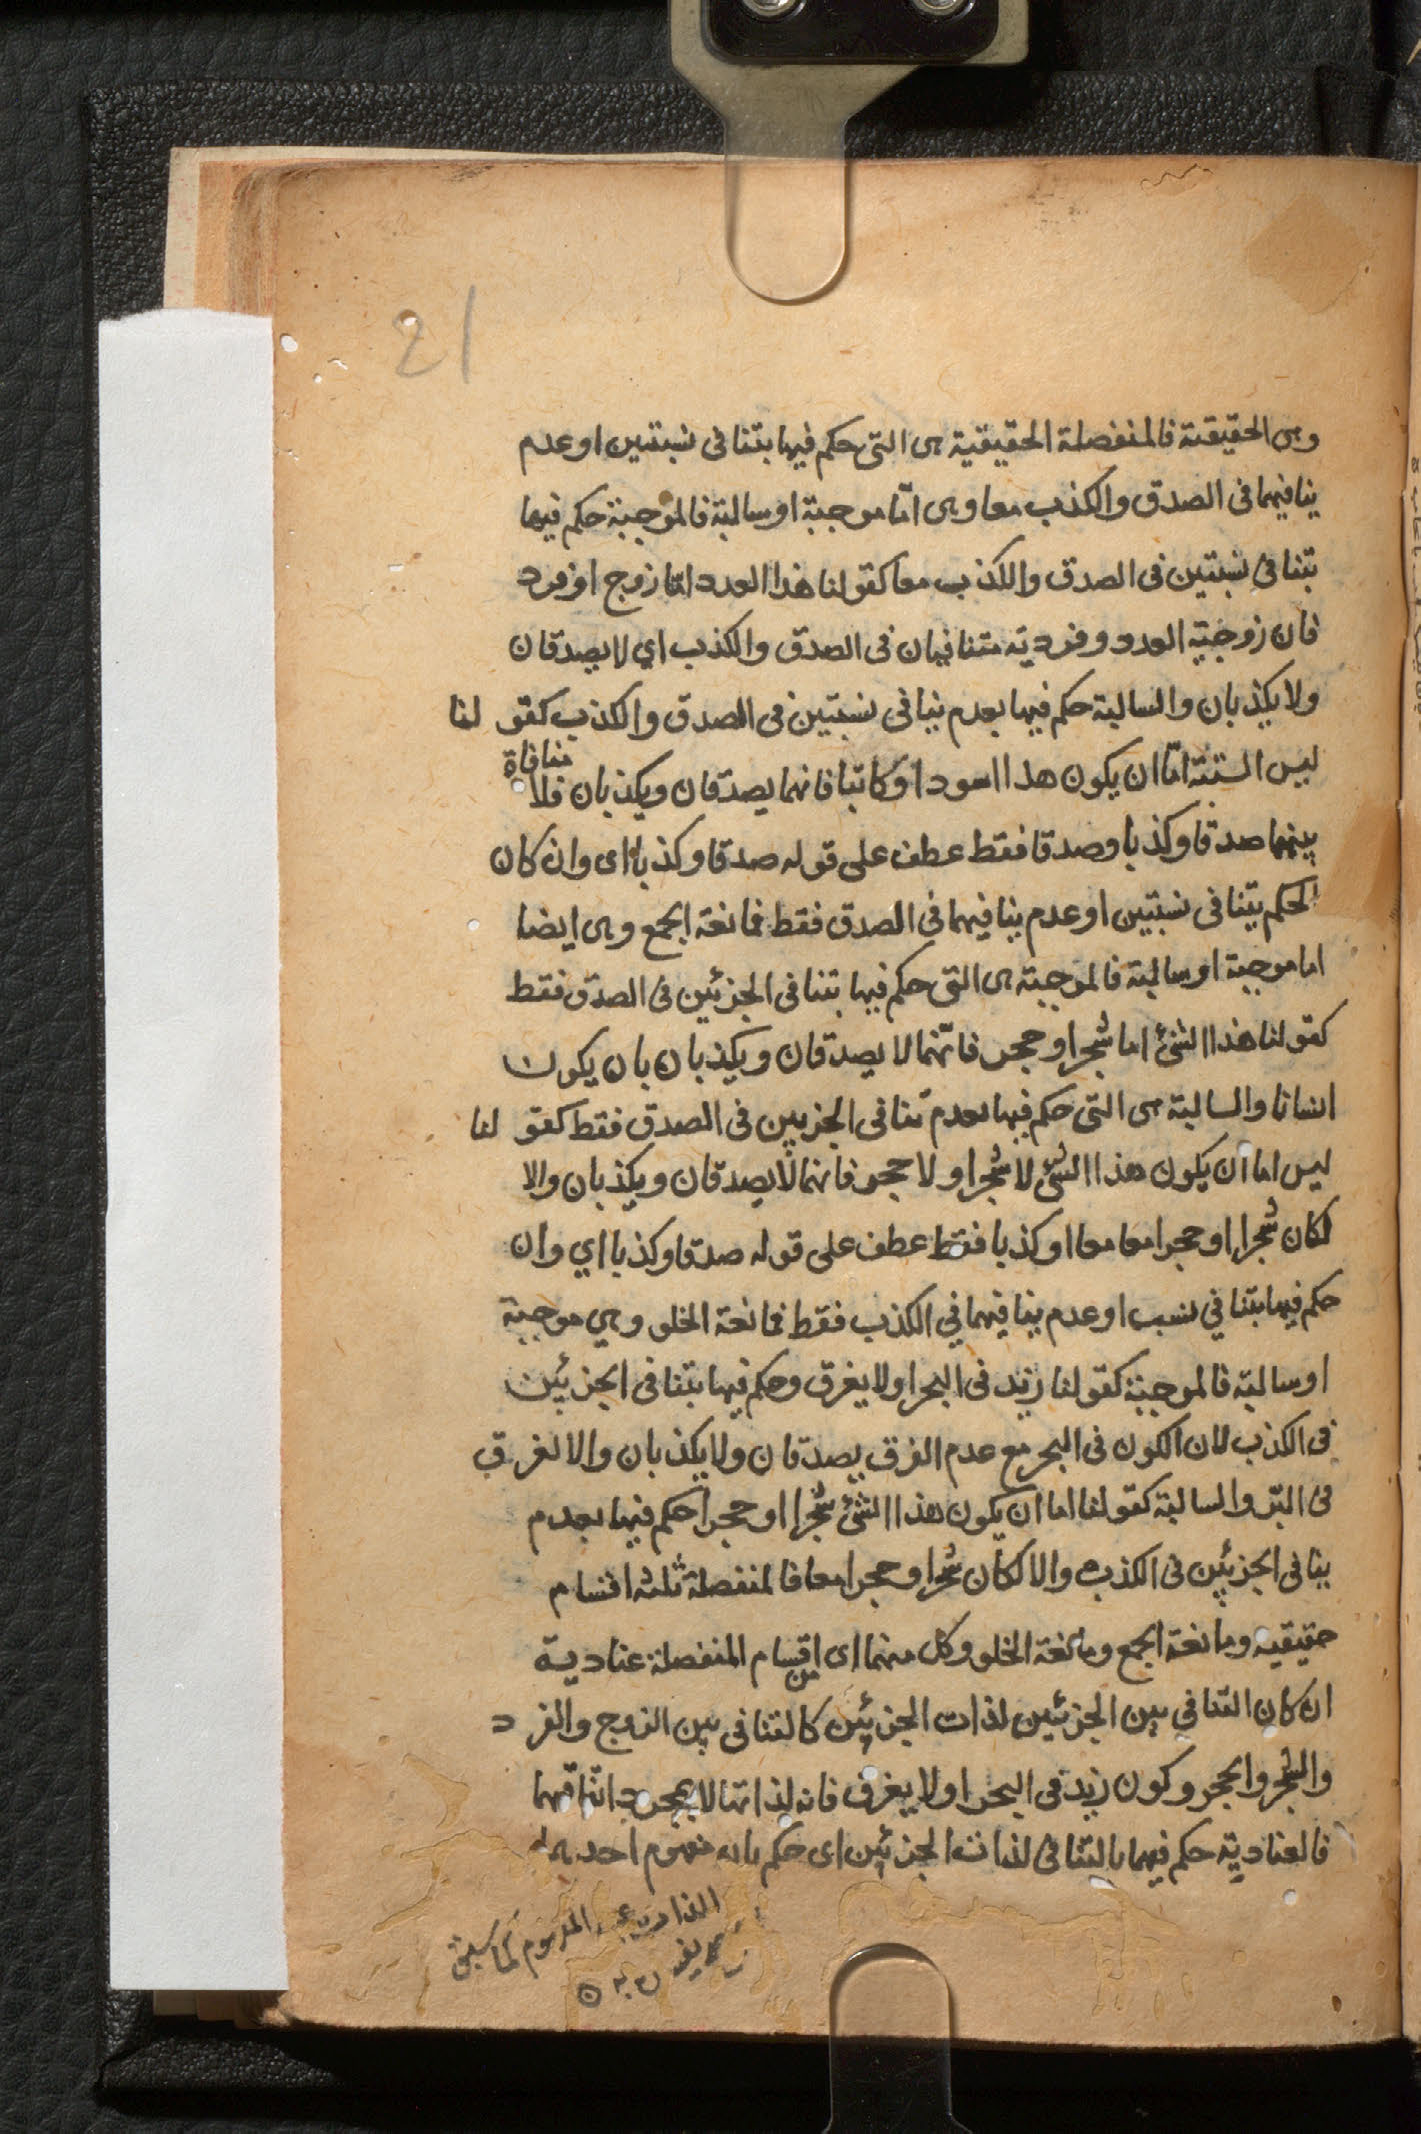 21
وهى الحقيقة فالمنفصلة الحقيقية هى التى حكم فيها بتنافى نسبتين او عدم
ينافيهما فى الصدق والكذب معا وهى امّا موجبة او سالبة فالموجبة حكم فيها
بتنافى نسبتين فى الصدق والكذب معا كقولنا هذا العدد امّا زوج او فرد
فان زوجية العدد وفرديته متنافيان فى الصدق والكذب اي لا يصدقان
ولا يكذبان والسالبة حكم فيها بعدم ينافى نسبتين فى الصدق والكذب كقولنا
ليس البتة امّا ان يكون هذا اسود او كاتبا فانهما يصدقان ويكذبان فلا منافاة
بينهما صدقا وكذبا وصدقا فقط عطف على قوله صدقا وكذبا اى وان كان
الحكم بتنافى نسبتين او عدم ينافيهما فى الصدق فقط فمانعة الجمع وهى ايضا
اما موجبة او سالبة فالموجبة هى التى حكم فيها بتنافى الجزئين فى الصدق فقط
كقولنا هذا الشئ اما شجر او حجر فانهما لا يصدقان ويكذبان بان يكون
انسانا والسالبة هى التى حكم فيها بعدم تنافى الجزئين فى الصدق فقط كقولنا
ليس اما ان يكون هذا الشئ لا شجر او لا حجر فانهما لا يصدقان ويكذبان والا
لكان شجرا او حجرا معا معا او كذبا فقط عطف على قوله صدقا وكذبا اي وان
حكم فيها بتنافي نسب او عدم ينافيهما في الكذب فقط فمانعة الخلو وهي موجبة
او سالبة فالموجبة كقولنا زيد فى البحر او لا يغرق وحكم فيها بتنافى الجزئين
فى الكذب لان الكون فى البحر مع عدم الغرق يصدقان ولا يكذبان والا لغرق
فى البّر والسالبة كقولنا اما ان يكون هذا الشئ شجرا او حجرا حكم فيها بعدم
ينافى الجزئين فى الكذب والا لكان شجرا وحجرا معا فالمنفصلة ثلثه اقسام
حقيقيه ومانعة الجمع ومانعة الخلو وكل منهما اى من اقسام المنفصلة عنادية
ان كان التنافي بين الجزئين لذات الجزئين كالتنافى بين الزوج والفرد
والشجر والحجر وكون زيد فى البحر او لا يغرق فانه لذاتها لا بمجرد اتفاقهما
فالعنادية حكم فيها بالتنافى لذات الجزئين اى حكم بان مفهوم احدهما